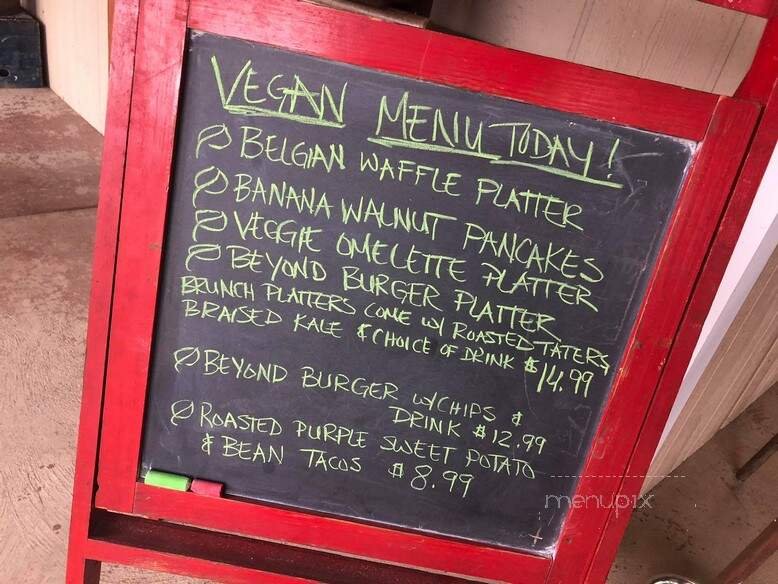 VEGAN MENU TODAY!
BELGIAN WAFFLE PLATTER
BANANA WALNUT PANCAKES
VEGGIE OMELETTE PLATTER
BEYOND BURGER PLATTER
BRUNCH PLATTERS COME W/ ROASTED TATERS
BRAISED KALE & CHOICE OF DRINK $14.99
BEYOND BURGER W/CHIPS &
DRINK $12.99
ROASTED PURPLE SWEET POTATO
& BEAN TACOS $8.99
menupix